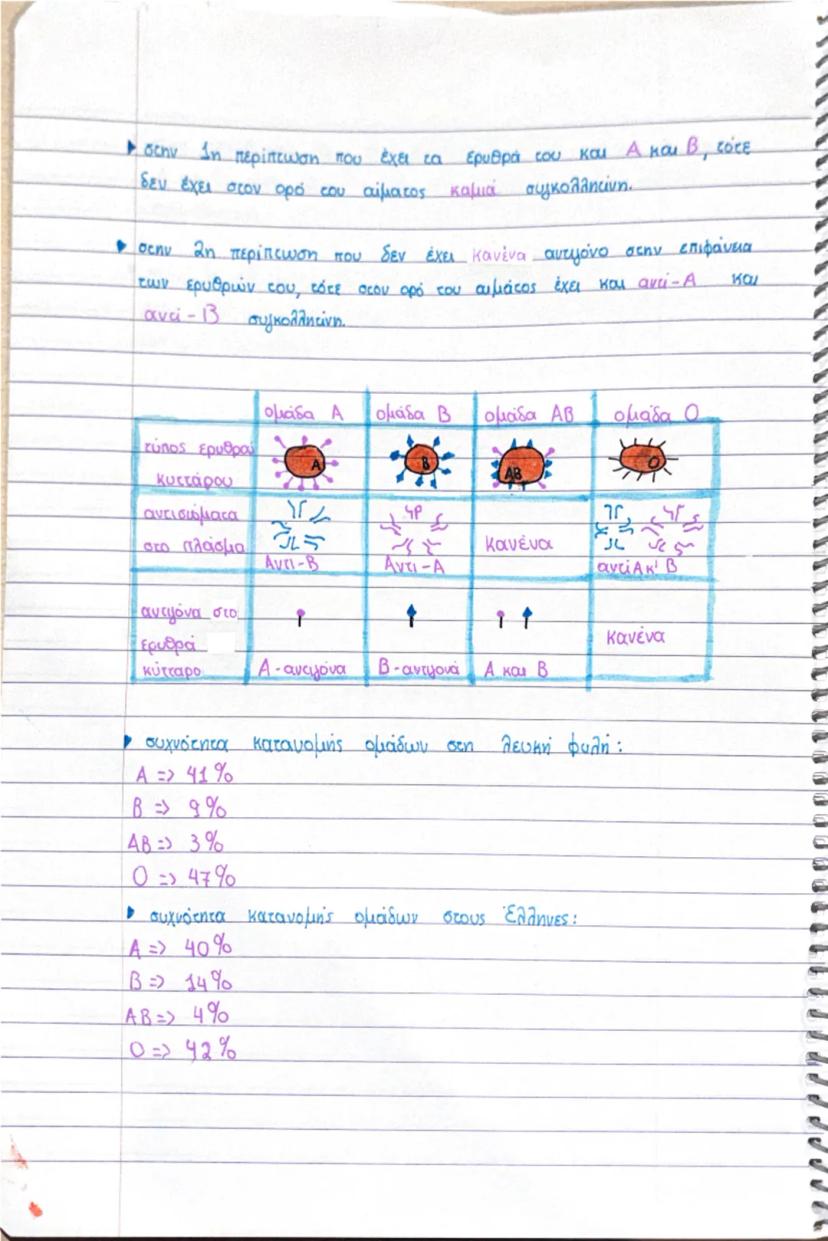 στην 1η περίπτωση που έχει τα ερυθρά του και Α και Β, τότε
δεν έχει στον ορό του αίματος καμιά συγκολλητίνη.
στην 2η περίπτωση που δεν έχει κανένα αντιγόνο στην επιφάνεια
των ερυθρών του, τότε στον ορό του αιμάτος έχει και αντί-Α και
αντί-Β συγκολλητίνη.
ομάδα Α ομάδα Β ομάδα ΑΒ ομάδα Ο
τύπος ερυθρού
κυττάρου
Α Β ΑΒ Ο
αντισώματα
στο πλάσμα
Αντι-Β Αντι-Α κανένα αντί Α κ' Β
αντιγόνα στο
ερυθρά
κύτταρο
Α-αντιγόνα Β-αντιγονά Α και Β κανένα
συχνότητα κατανομής ομάδων στη λευκή φυλή:
Α => 41%
Β => 9%
ΑΒ => 3%
Ο => 47%
συχνότητα κατανομής ομάδων στους Έλληνες:
Α => 40%
Β => 14%
ΑΒ => 4%
Ο => 42%